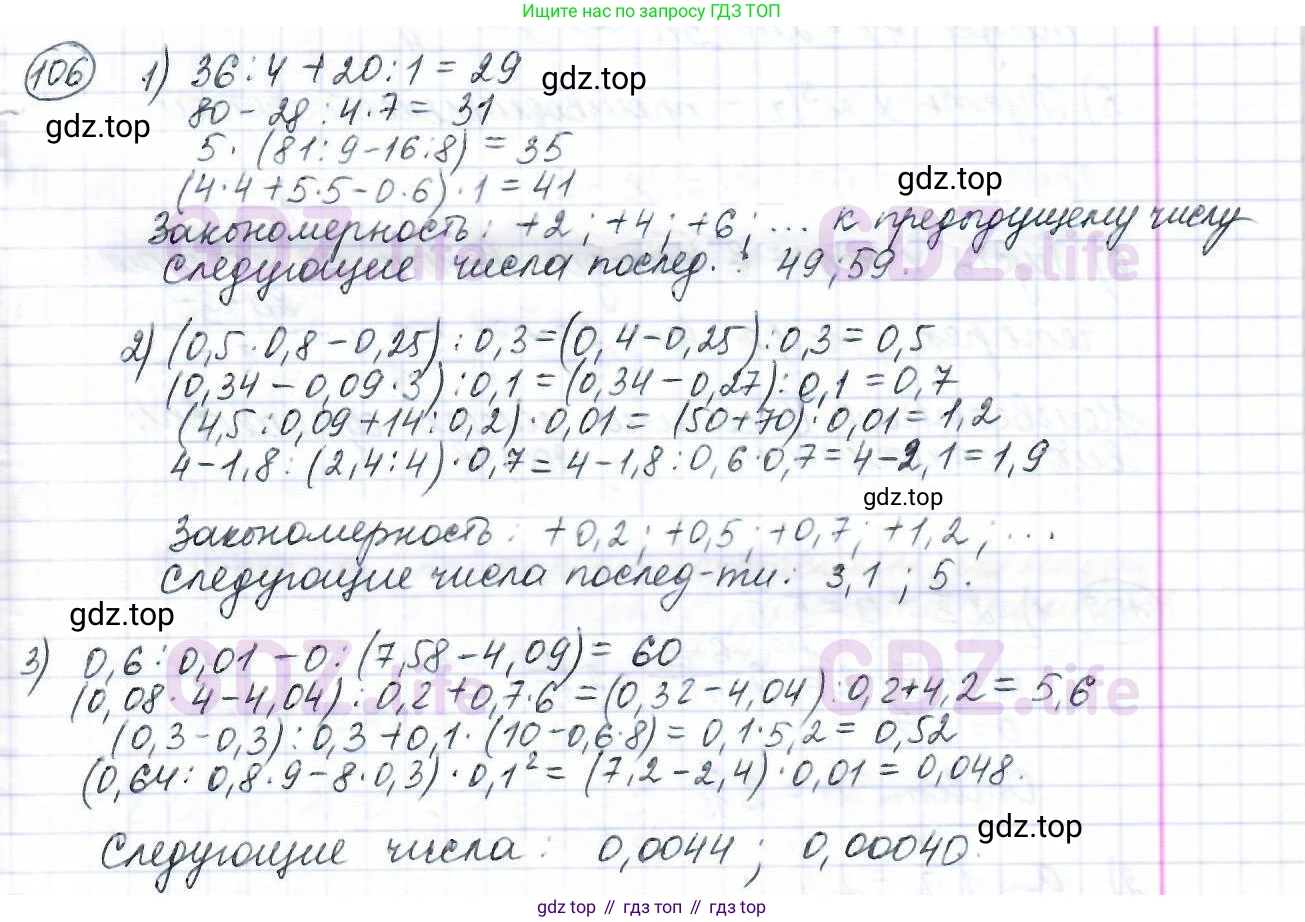 Ищите нас по запросу ГДЗ ТОП
106 1) 36:4+20:1=29
gdz.top
80-28:4·7=31
gdz.top
5·(81:9-16:8)=35
(4·4+5·5-0·6)·1=41
gdz.top
Закономерность: +2; +4; +6; ... к предыдущему числу
следующие числа послед.: 49; 59.
GDZ.life GDZ.life
2) (0,5·0,8-0,25):0,3=(0,4-0,25):0,3=0,5
(0,34-0,09·3):0,1=(0,34-0,27):0,1=0,7
(4,5:0,09+14:0,2)·0,01=(50+70)·0,01=1,2
4-1,8:(2,4:4)·0,7=4-1,8:0,6·0,7=4-2,1=1,9
gdz.top
Закономерность: +0,2; +0,5; +0,7; +1,2; ...
следующие числа послед-ти: 3,1; 5.
gdz.top
3) 0,6:0,01-0:(7,58-4,09)=60
(0,08·4-4,04):0,2+0,7·6=(0,32-4,04):0,2+4,2=5,6
GDZ.life GDZ.life
(0,3-0,3):0,3+0,1·(10-0,6·8)=0,1·5,2=0,52
(0,64:0,8·9-8·0,3)·0,1²=(7,2-2,4)·0,01=0,048.
Следующие числа: 0,0044; 0,00040.
gdz.top
gdz top // гдз топ // gdz top